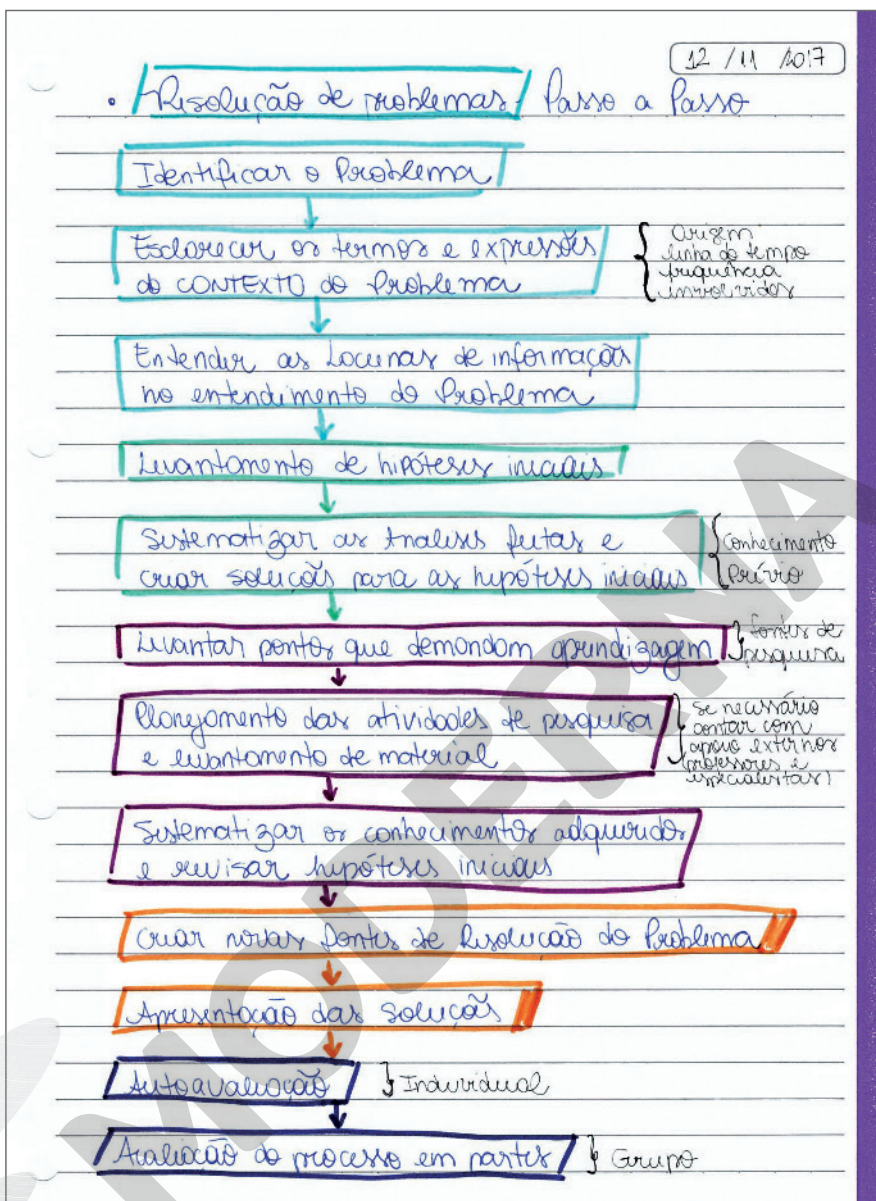 12 / 11 / 2017
• Resolução de problemas Passo a Passo
Identificar o Problema
Esclarecer os termos e expressões
do CONTEXTO do Problema
Origem
linha do tempo
frequência
envolvidos
Entender as Lacunas de informações
no entendimento do Problema
Levantamento de hipóteses iniciais
Sistematizar as Analises feitas e
criar soluções para as hipóteses iniciais
Conhecimento
Prévio
Levantar pontos que demandam aprendizagem
fontes de
pesquisa
Planejamento das atividades de pesquisa
e levantamento de material
Se necessário
contar com
apoio externos
(professores e
especialistas)
Sistematizar os conhecimentos adquiridos
e revisar hipóteses iniciais
Criar novas fontes de Resolução do Problema
Apresentação das Soluções
Autoavaliação
Individual
Avaliação do processo em partes
Grupo
MODERNA